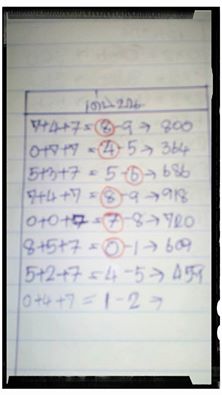 7+4+7=8-9→ 800
0+7+7=4-5→ 364
5+3+7= 5-6→686
7+4+7=8-9→918
0+0+7=7-8→720
8+5+7=0-1→609
5+2+7=4-5→459
0+4+7=1-2→